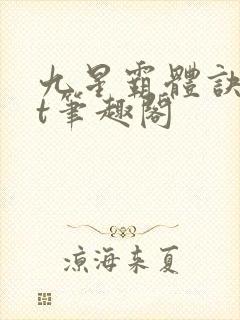 九星霸體訣
t筆趣閣
涼海未夏